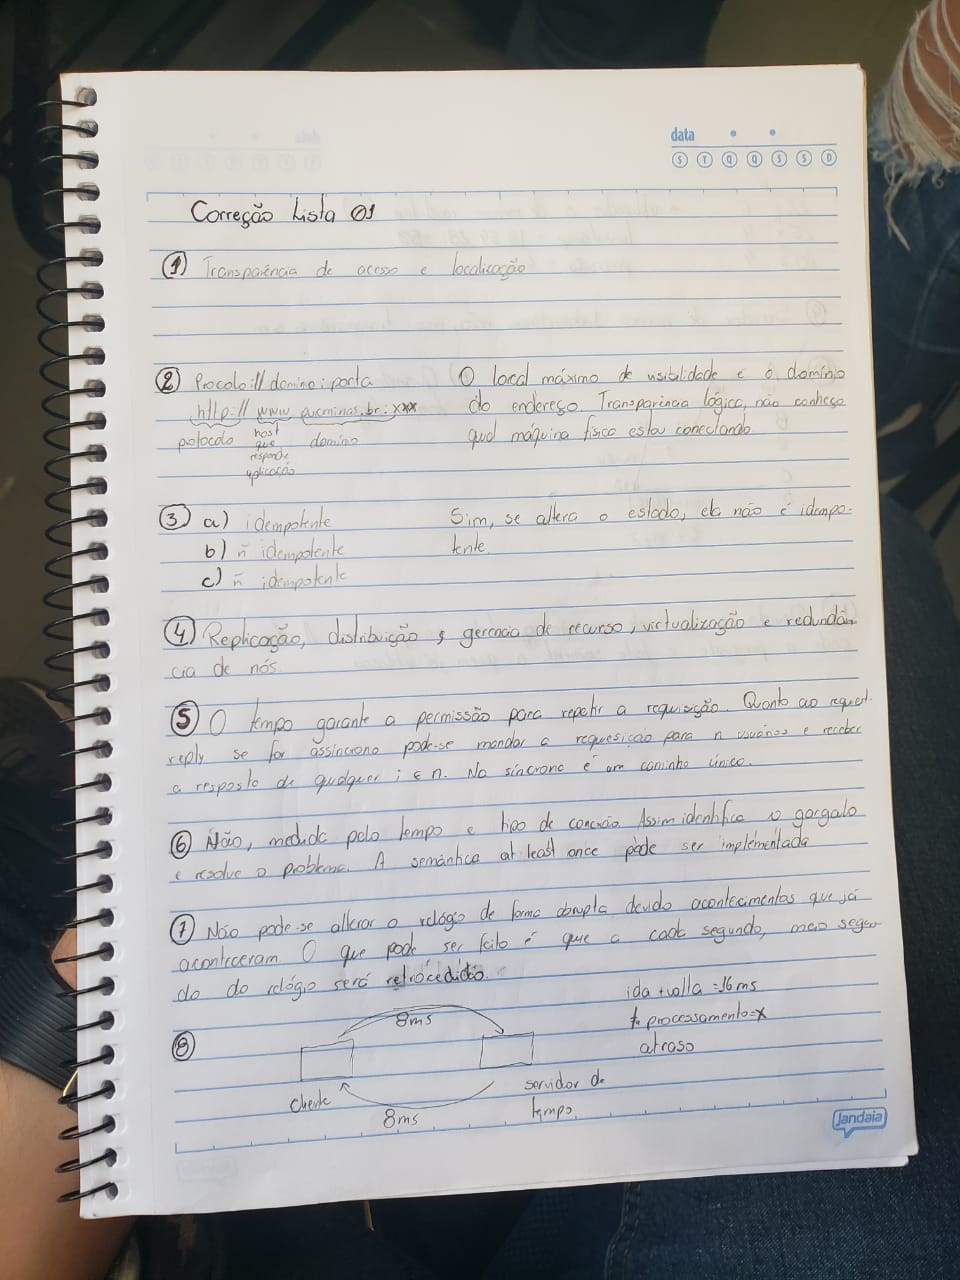 data
S T Q Q S S D
Correção Lista 01
① Transparência de acesso e localização
② Procolo:// domino:porta
http:// www. pucminas.br:xxx
protocolo host domínio
que
responde
aplicação
O local máximo de visibilidade é o domínio
do endereço. Transparência lógica, não conheço
qual máquina física estou conectando
③ a) idempotente
b) ñ idempotente
c) ñ idempotente
Sim, se altera o estado, ela não é idempo-
tente.
④ Replicação, distribuição, gerencia de recurso, virtualização e redundân-
cia de nós
⑤ O tempo garante a permissão para repetir a requisição. Quanto ao request
reply se for assíncrono pode-se mandar a requesição para n usuários e receber
a resposta de qualquer i ∈ n. No síncrono é um caminho único.
⑥ Não, medida pelo tempo e tipo de conexão Assim identifica o gargalo
e resolve o problema. A semântica at least once pode ser implementada
⑦ Não pode-se alterar o relógio de forma abrupta devido acontecimentos que já
aconteceram O que pode ser feito é que a cada segundo, meio segun-
do do relógio será retrocedido.
⑧
8ms
cliente
8ms
servidor de
tempo
ida + volta = 16ms
t. processamento = x
atraso
Jandaia